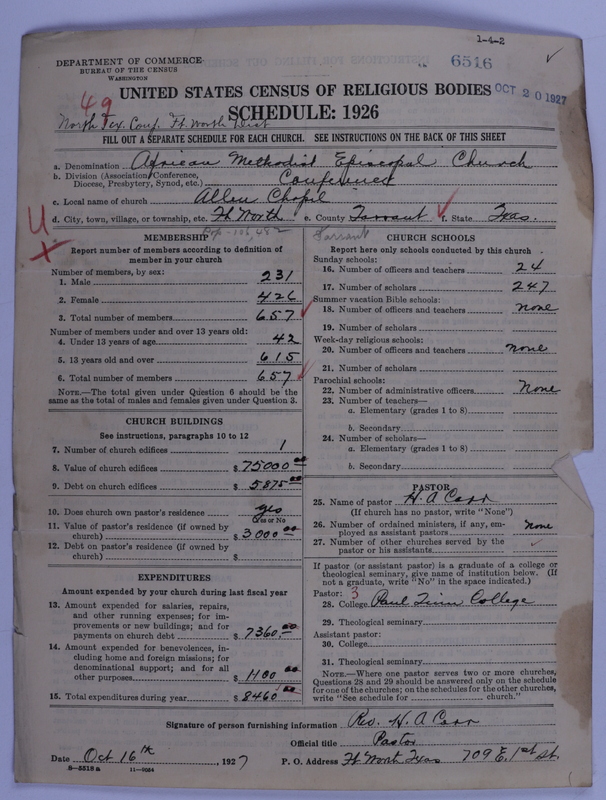 1-4-2
DEPARTMENT OF COMMERCE
BUREAU OF THE CENSUS
WASHINGTON
6516
UNITED STATES CENSUS OF RELIGIOUS BODIES
OCT 20 1927
SCHEDULE: 1926
49
North Tex. Conf. Ft. Worth Dist
FILL OUT A SEPARATE SCHEDULE FOR EACH CHURCH. SEE INSTRUCTIONS ON THE BACK OF THIS SHEET
a. Denomination African Methodist Episcopal Church
b. Division (Association, Conference, Diocese, Presbytery, Synod, etc.) Conference
c. Local name of church Allen Chapel
d. City, town, village, or township, etc. Ft Worth e. County Tarrant f. State Texas.
U
Tarrant
MEMBERSHIP
Report number of members according to definition of
member in your church
Number of members, by sex:
1. Male 231
2. Female 426
3. Total number of members 657
Number of members under and over 13 years old:
4. Under 13 years of age 42
5. 13 years old and over 615
6. Total number of members 657
NOTE.—The total given under Question 6 should be the
same as the total of males and females given under Question 3.
CHURCH BUILDINGS
See instructions, paragraphs 10 to 12
7. Number of church edifices 1
8. Value of church edifices $ 75000.00
9. Debt on church edifices $ 5875.00
10. Does church own pastor's residence yes
Yes or No
11. Value of pastor's residence (if owned by
church) $ 3000.00
12. Debt on pastor's residence (if owned by
church) $
EXPENDITURES
Amount expended by your church during last fiscal year
13. Amount expended for salaries, repairs,
and other running expenses; for im-
provements or new buildings; and for
payments on church debt $ 7360.00
14. Amount expended for benevolences, in-
cluding home and foreign missions; for
denominational support; and for all
other purposes $ 1100.00
15. Total expenditures during year $ 8460.00
CHURCH SCHOOLS
Report here only schools conducted by this church
Sunday schools:
16. Number of officers and teachers 24
17. Number of scholars 247
Summer vacation Bible schools:
18. Number of officers and teachers none
19. Number of scholars
Week-day religious schools:
20. Number of officers and teachers none
21. Number of scholars
Parochial schools:
22. Number of administrative officers None
23. Number of teachers—
a. Elementary (grades 1 to 8)
b. Secondary
24. Number of scholars—
a. Elementary (grades 1 to 8)
b. Secondary
PASTOR
25. Name of pastor H. A Carr
(If church has no pastor, write "None")
26. Number of ordained ministers, if any, em-
ployed as assistant pastors none
27. Number of other churches served by the
pastor or his assistants
If pastor (or assistant pastor) is a graduate of a college or
theological seminary, give name of institution below. (If
not a graduate, write "No" in the space indicated.)
Pastor: 3
28. College Paul Quinn College
29. Theological seminary
Assistant pastor:
30. College
31. Theological seminary
NOTE.—Where one pastor serves two or more churches,
Questions 28 and 29 should be answered only on the schedule
for one of the churches; on the schedules for the other churches,
write "See schedule for church."
Signature of person furnishing information Rev. H. A Carr
Official title Pastor
Date Oct 16th, 1927 P. O. Address Ft Worth Texas 709 E. 1st St.
8—5518 a 11—9064